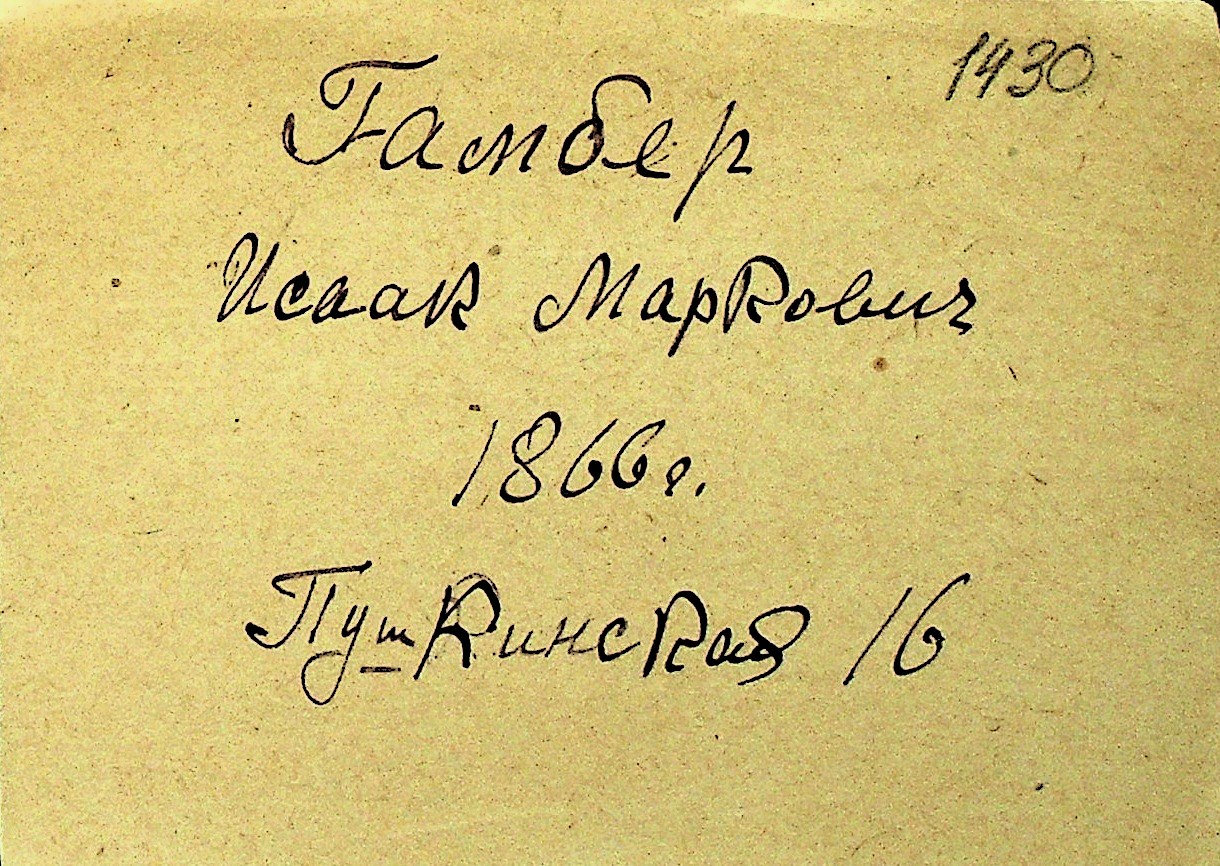 1430
Гамбер
Исаак Маркович
1866 г.
Пушкинская 16